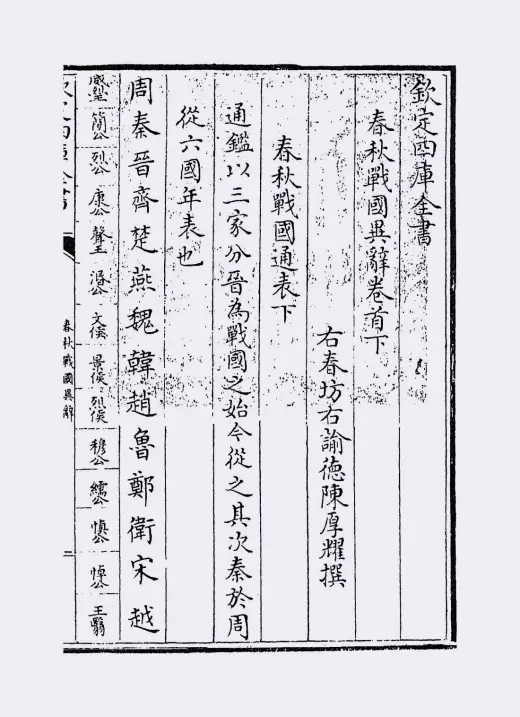 欽定四庫全書
春秋戰國異辭卷首下
右春坊右諭德陳厚耀撰
春秋戰國通表下
通鑑以三家分晉為戰國之始今從之其次秦於周
從六國年表也
周秦晉齊楚燕魏韓趙魯鄭衛宋越
威王 簡公 烈公 康公 聲王 湣公 文侯 景侯 烈侯 穆公 繻公 慎公 悼公 王翳
春秋戰國異辭